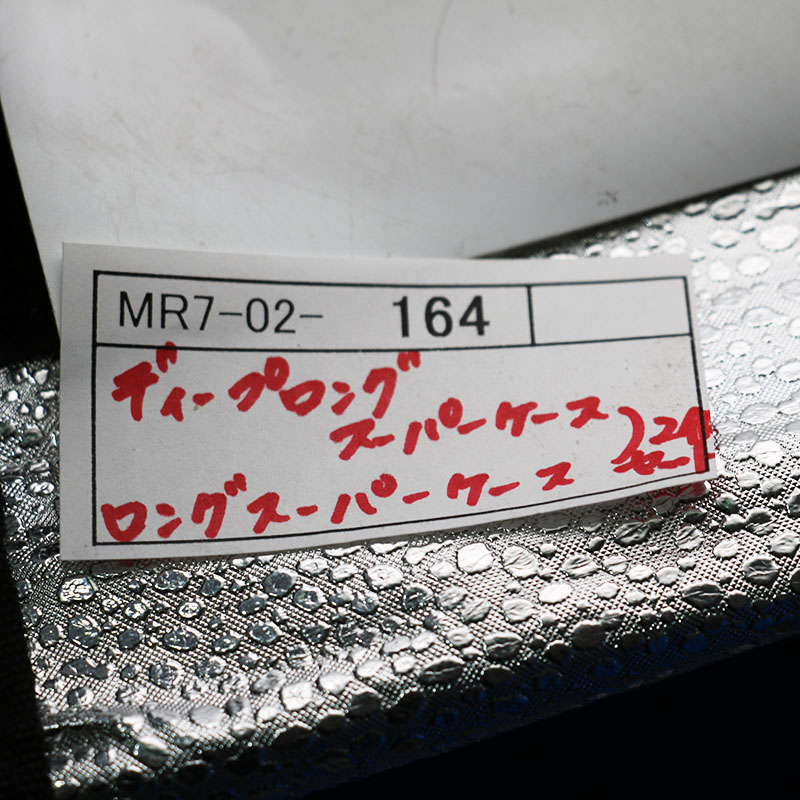 MR7-02- 164
ディープロング
スーパーケース
ロングスーパーケース